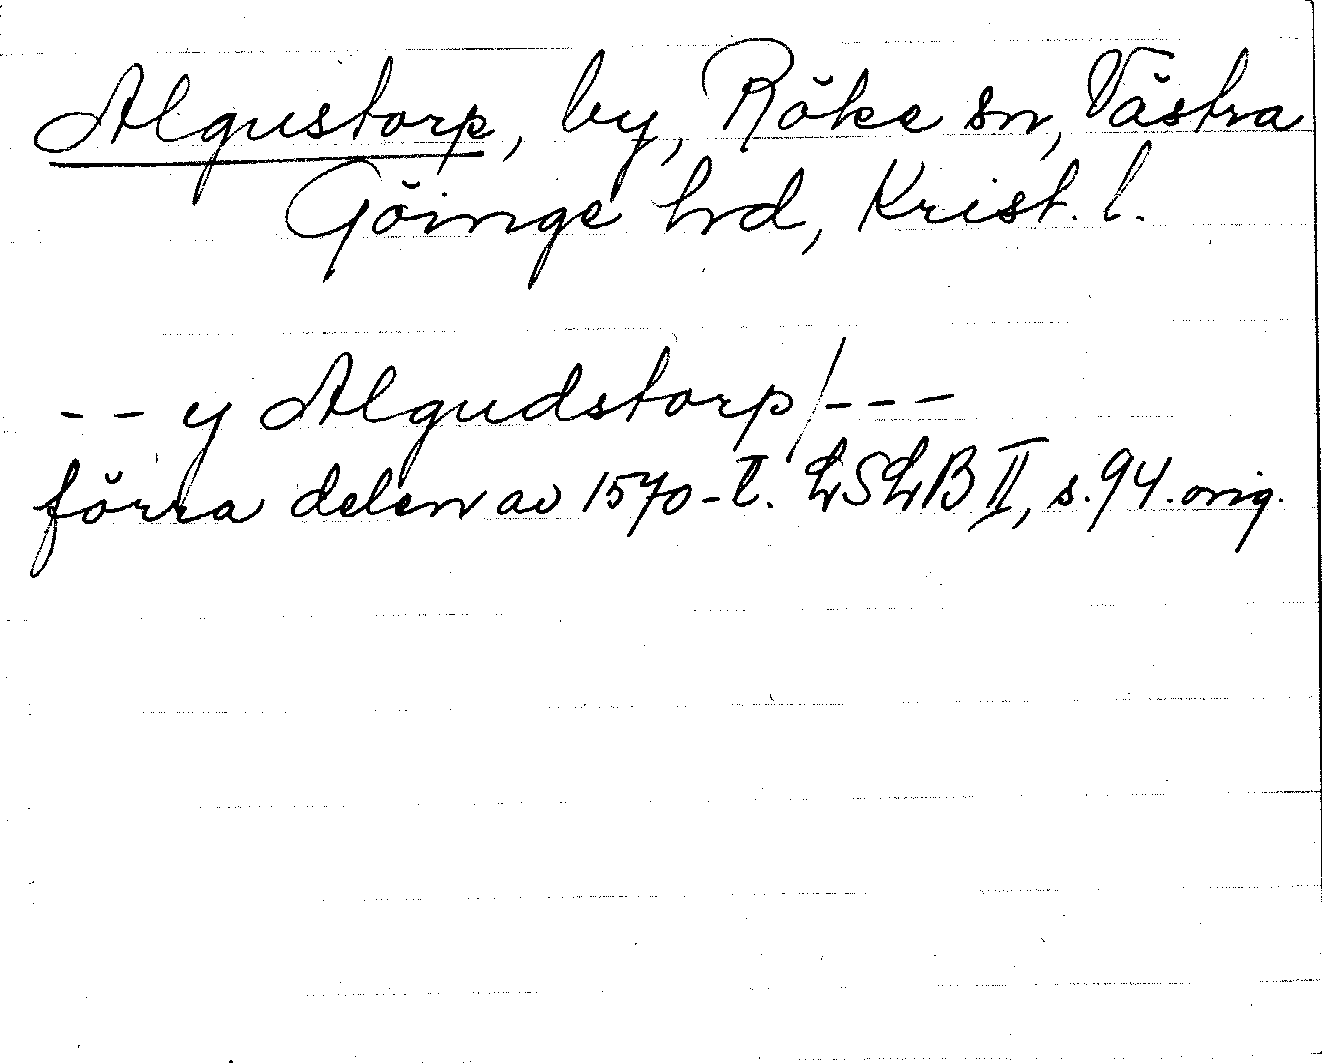 Algustorp, by, Röke sn, Västra
Göinge hrd, Krist. l.
-- y Algudstorp/---
förra delen av 1570-t. LSLB II, s.94.orig.